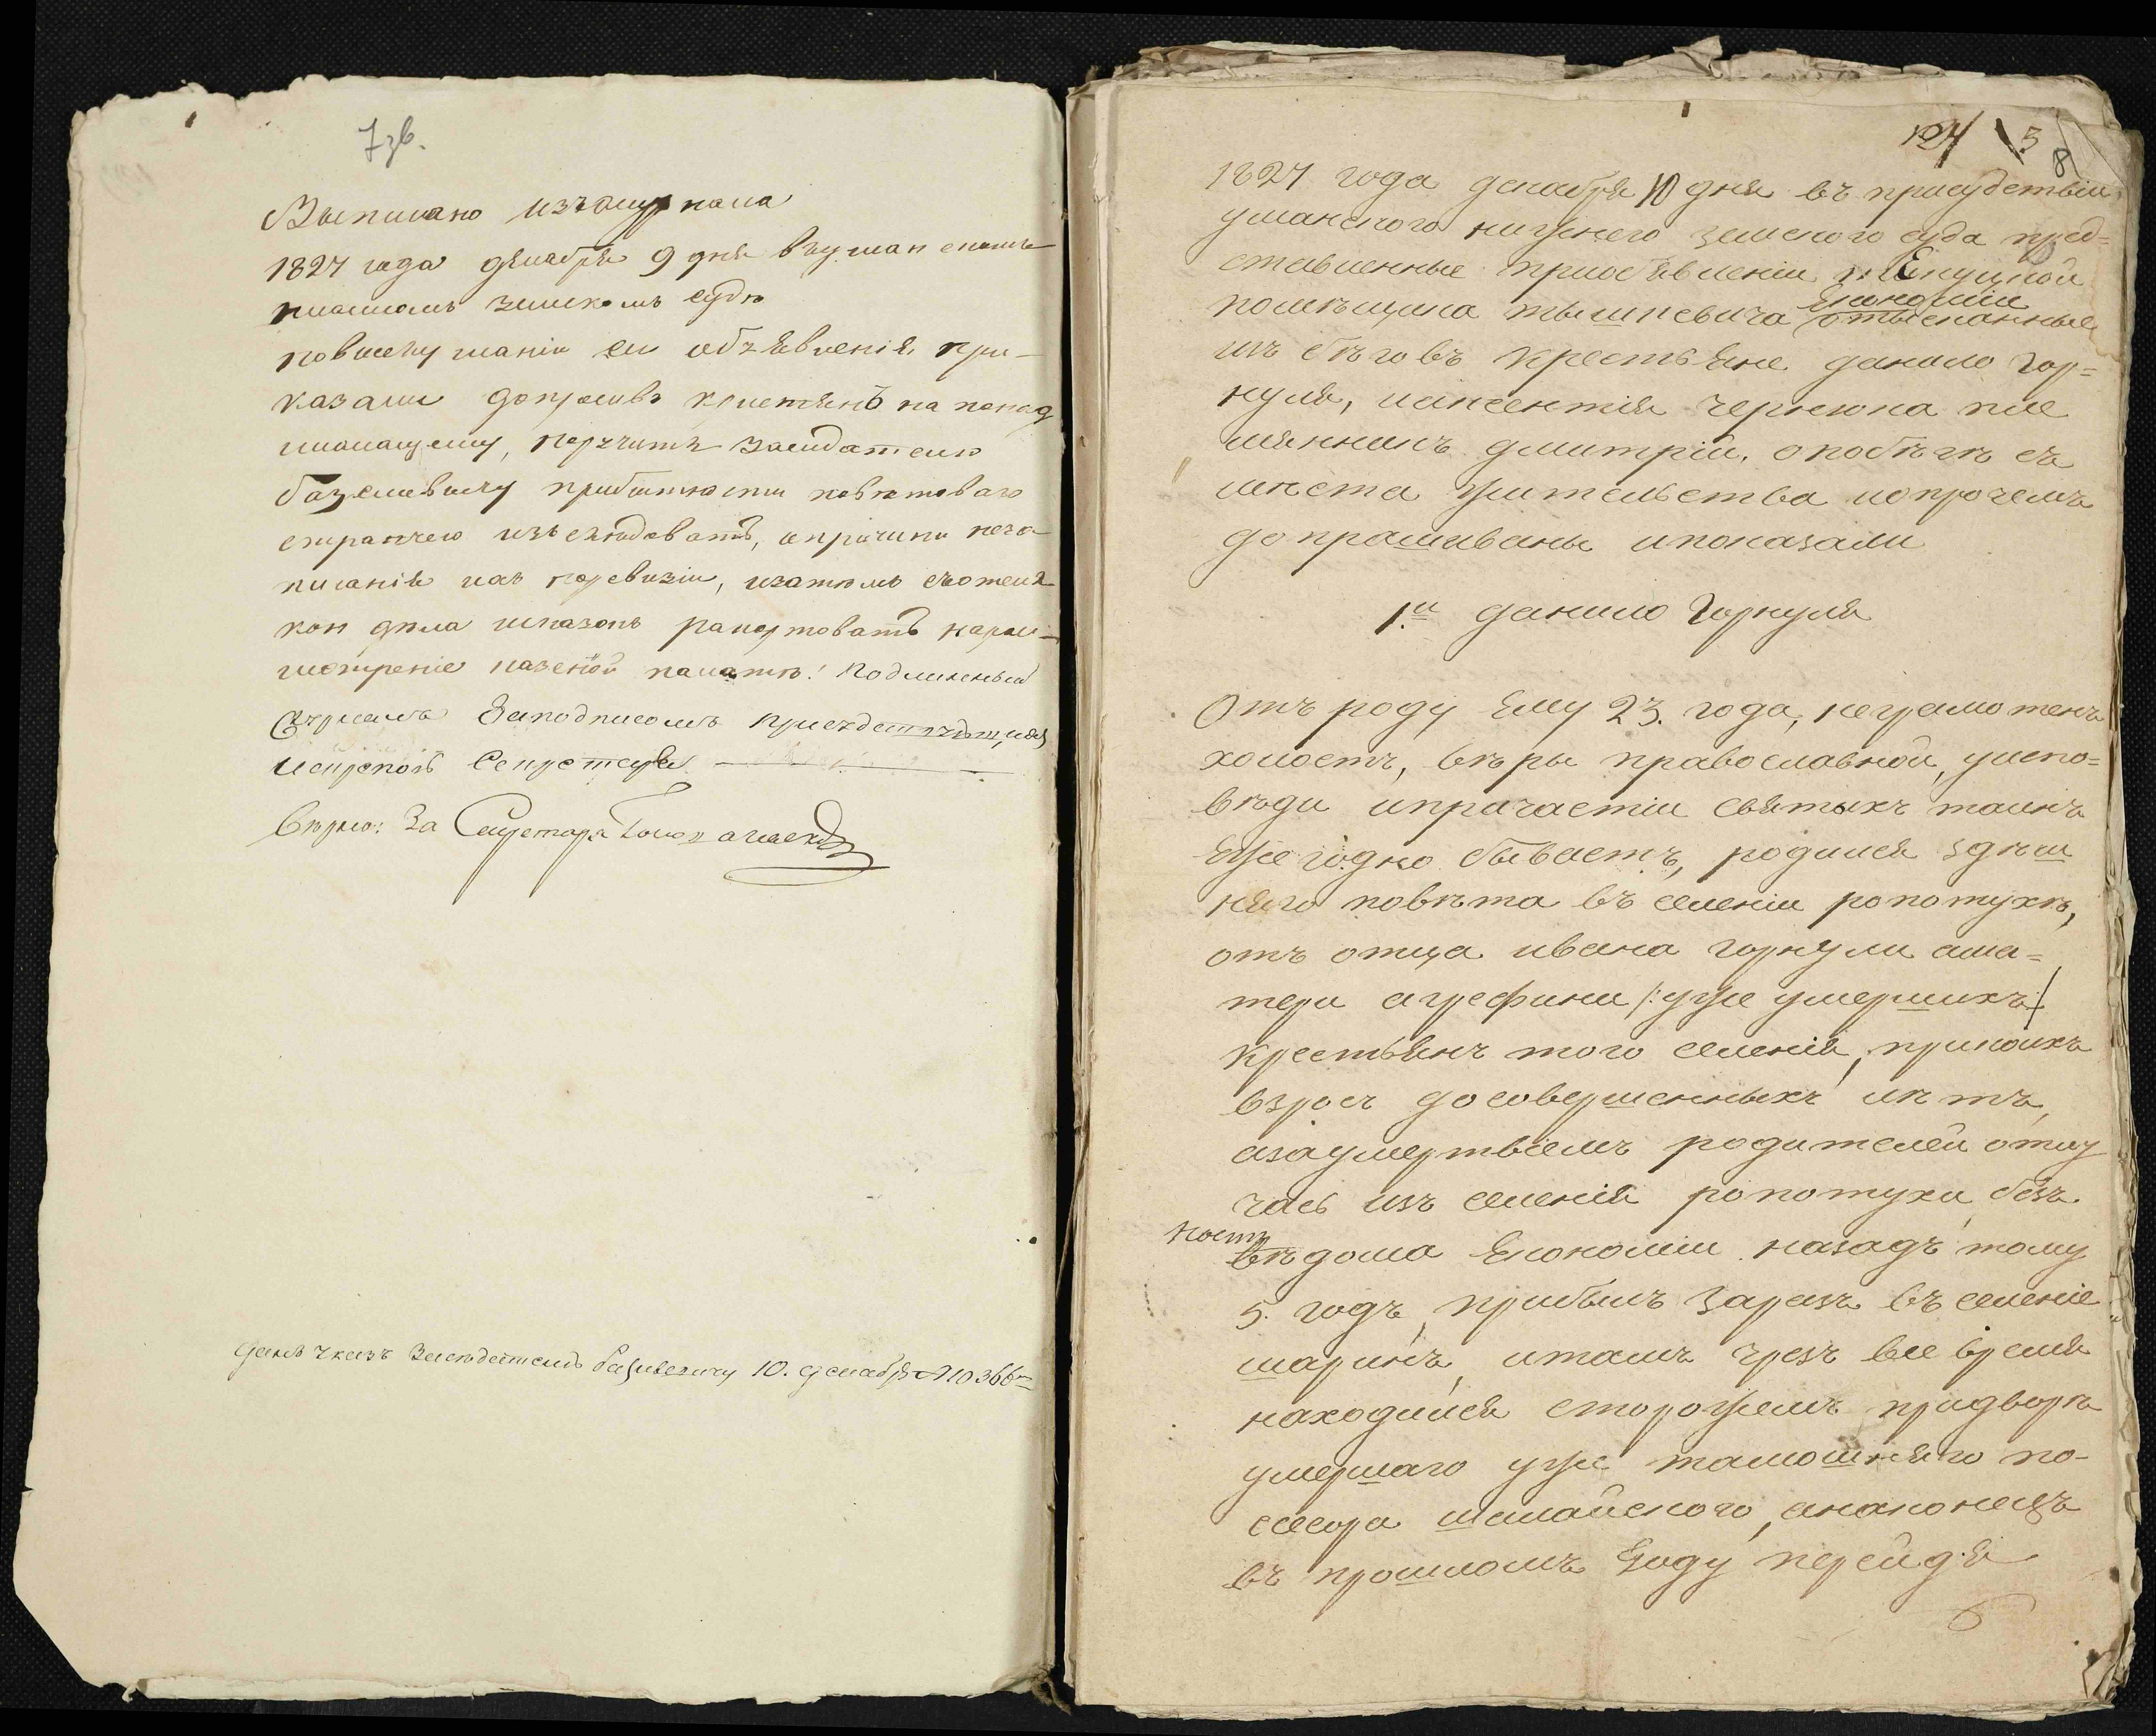 7 зв.
Выписано изъ журнала
1827 года декабря 9 дня въ уманскомъ
нижнемъ земскомъ суде
по выслушаніи сей объявленія при-
казали допросивъ крестянъ
, поручить заседателю
базилевичу прибытности поветоваго
стряпчего изъследовать, о причини неза-
писанія ихъ поревизіи, изатемъ
кои дела указомъ рапортовать
казеной палате! Подлинный
Журналъ заподписомъ
искрепою Секретаря
Верно: За Секретаря
данъ указъ Заседателю базилевичу 10. декабря №10366
124 3
8
1827 года декабря 10 дня въ присудствіи
уманского нижнего земского суда пред=
ставленные приобъявленіи
Экономіи
помещика тышкевича отысканные
изъ беговъ крестьяне данило гор=
куля, инокентія чернюка пле
мянникъ дмитрій, опобеге съ
места жительства ипрочемъ
допрашиваны ипоказали
1.й данило горкуля
Отъ роду ему 23. года, неграмотенъ
холостъ, веры православной, уиспо=
веди ипричастіи святыхъ таинъ
ежегодно бываетъ, родился здеш
няго повета въ селеніи ропотухе,
отъ отца ивана горкули има=
тери агрефини /:уже умершихъ:/
крестьянъ того селенія, приноихъ
взросъ досовершенныхъ летъ,
изаумертвіемъ родителей отлу
чась изъ селенія ропотухи безъ
ведома Економіи назадъ тому
5. годъ, прибылъ заразъ въ селеніе
шаринъ, итамъ чрезъ все время
находился сторожемъ придворе
умершаго уже тамошняго по-
сесора, анаконецъ
въ прошломъ году перейдя